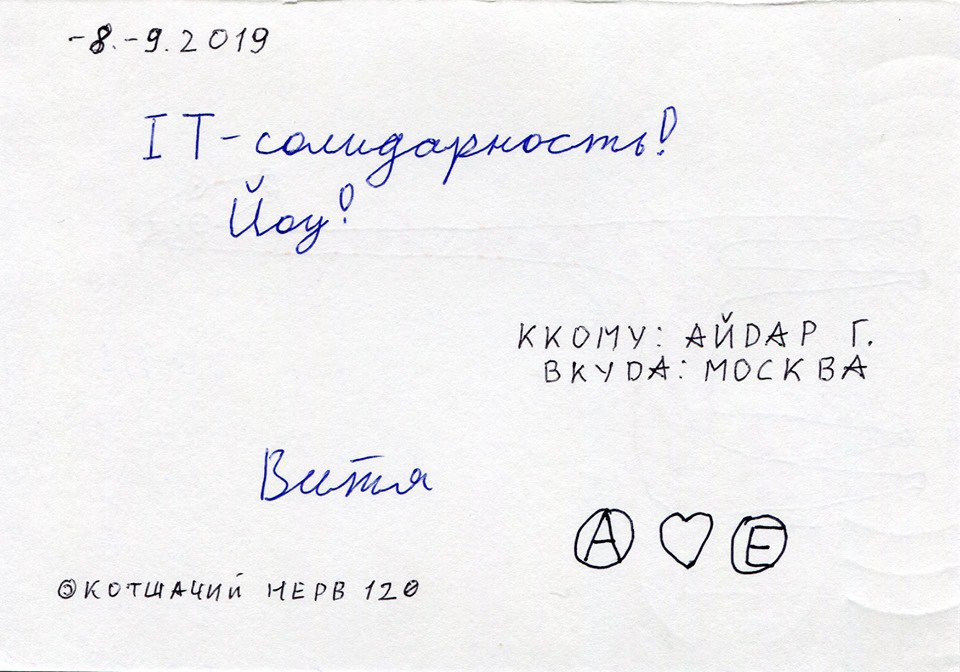 -8.-9.2019
IT-солидарность!
Йоу!
ККОМУ: АЙДАР Г.
ВКУДА: МОСКВА
Витя
А ♡ Е
КОТЩАЧИЙ НЕРВ 120